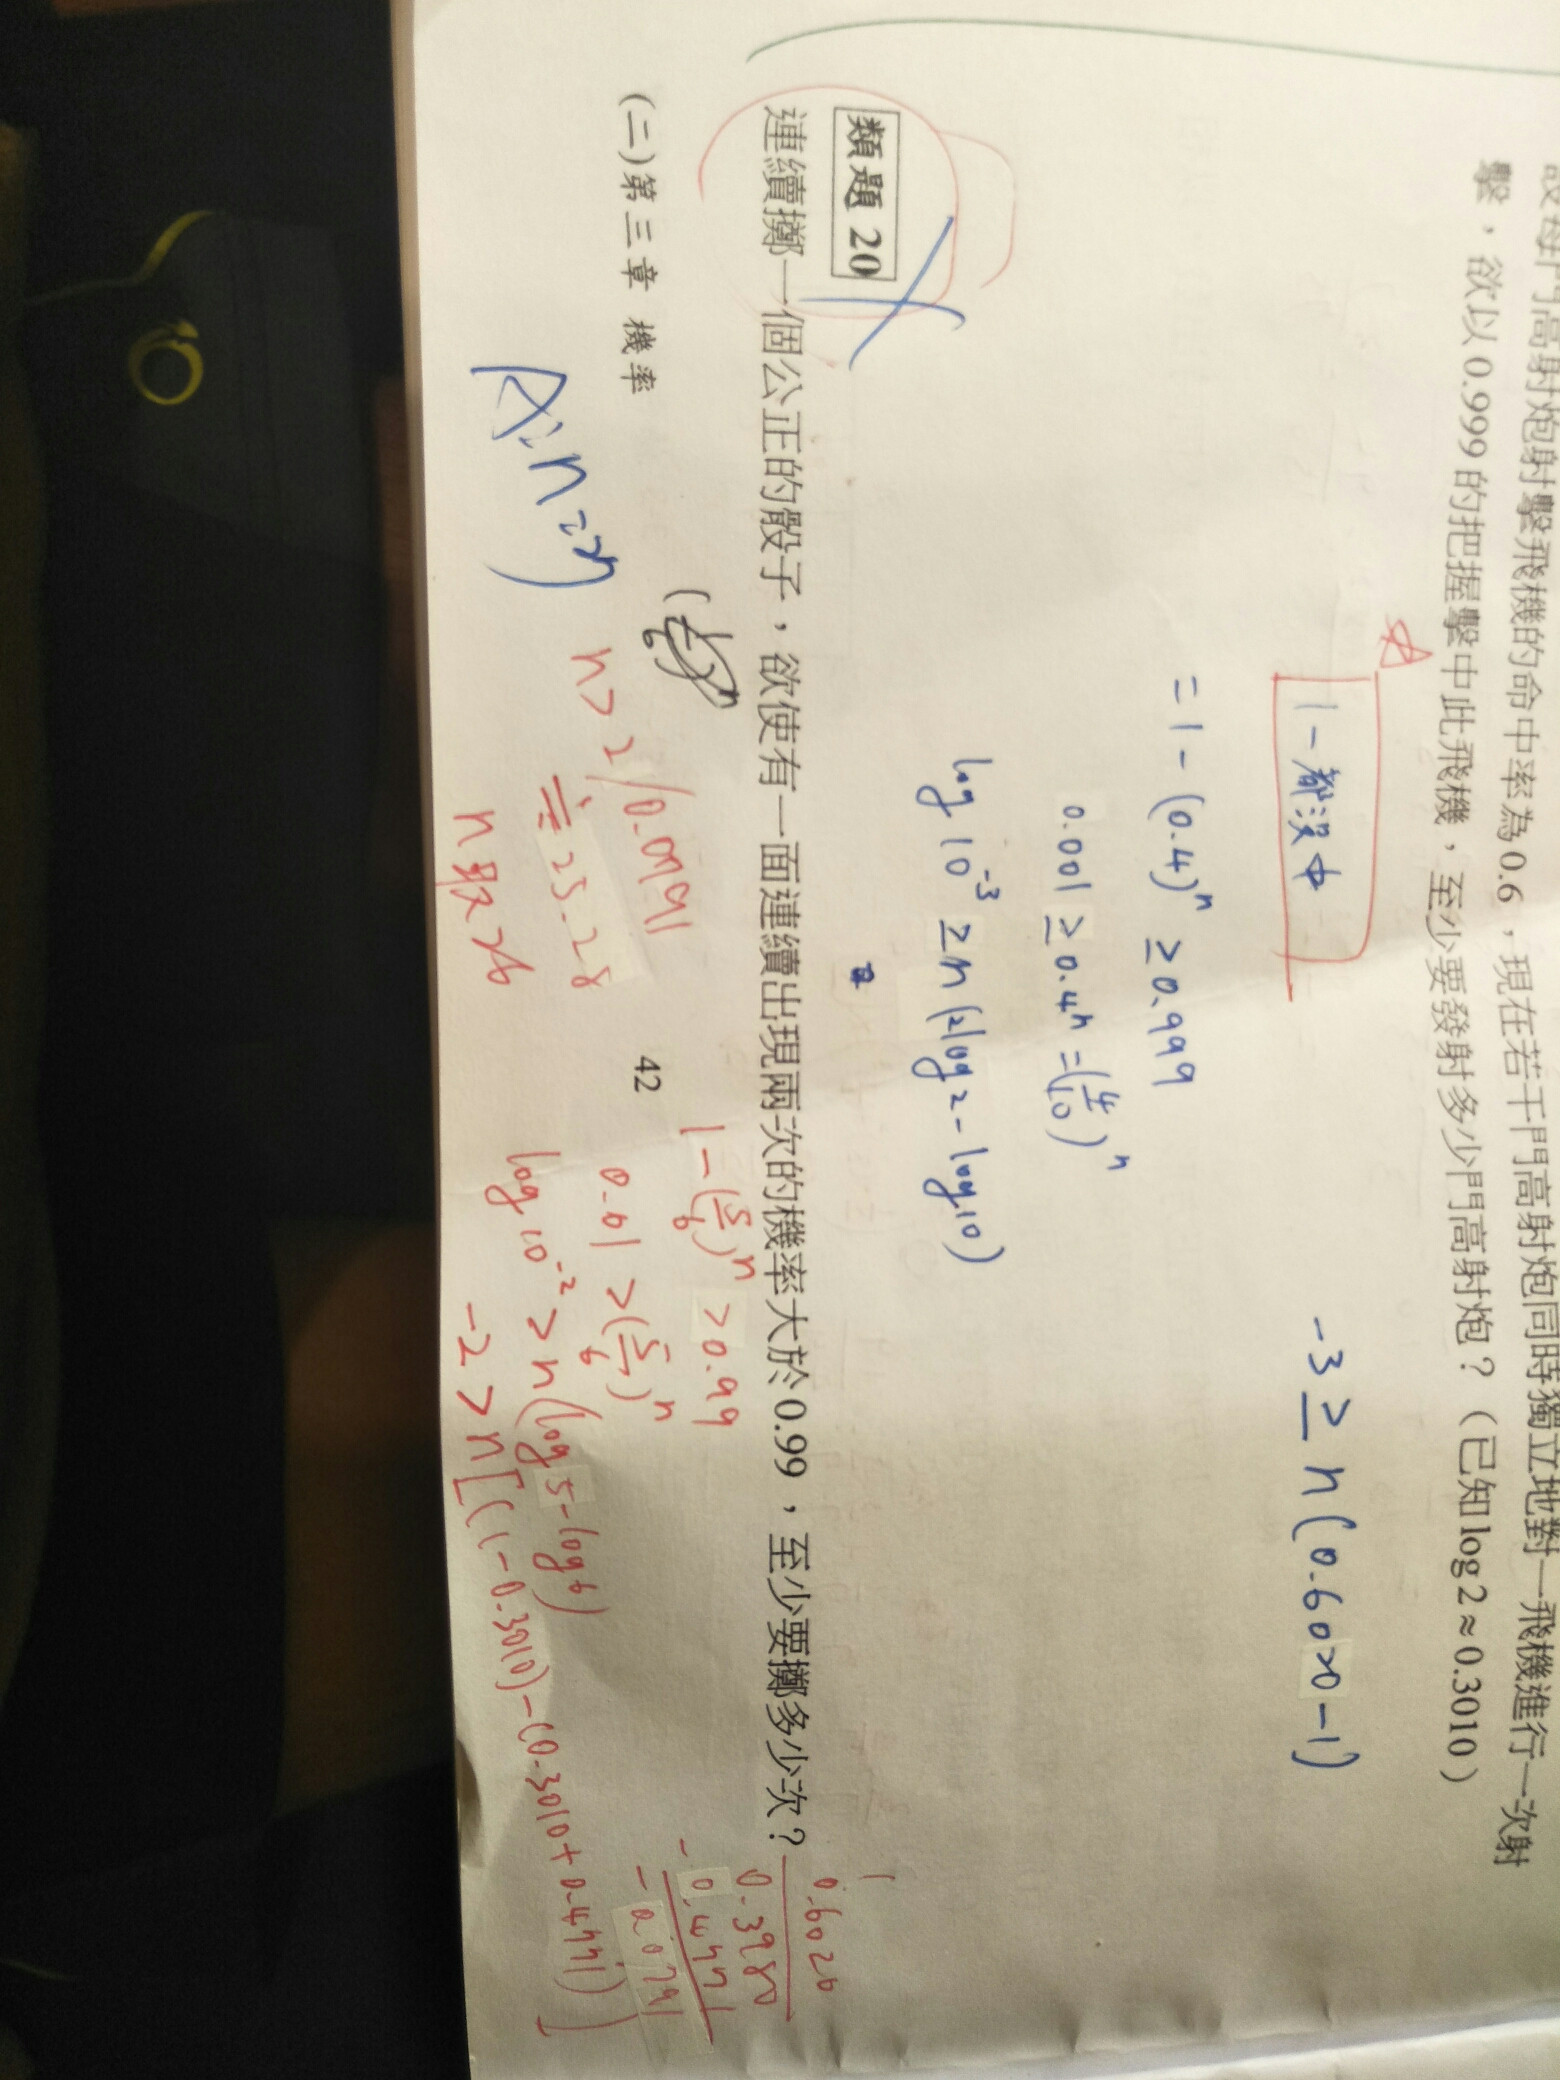 設每門高射炮射擊飛機的命中率為0.6，現在若干門高射炮同時獨立地對一飛機進行一次射
擊，欲以0.999的把握擊中此飛機，至少要發射多少門高射炮？（已知log2≈0.3010）
1-都沒中
-3≥n(0.6020-1)
=1-(0.4)ⁿ ≥0.999
0.001≥0.4ⁿ=(4/10)ⁿ
log10⁻³≥n(2log2-log10)
類題 20
連續擲一個公正的骰子，欲使有一面連續出現兩次的機率大於0.99，至少要擲多少次？
1
0.6020
0.3980
-0.4771
-0.0791
1-(5/6)ⁿ>0.99
0.01>(5/6)ⁿ
log10⁻²>n(log5-log6)
-2>n[(1-0.3010)-(0.3010+0.4771)]
n>2/0.0791
≒25.28
n最26
(二)第三章 機率
42
A:n=27